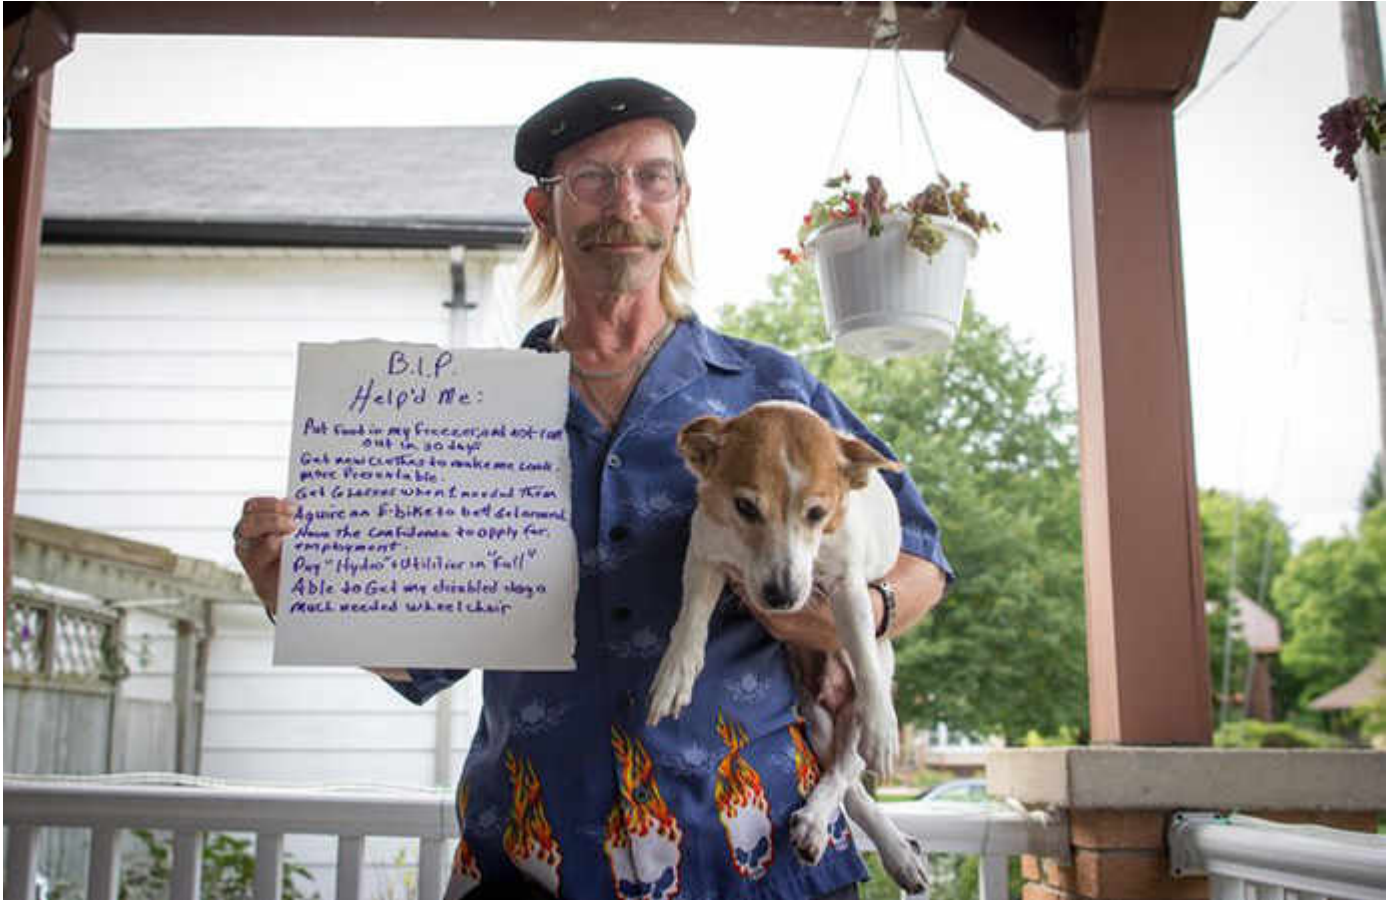 B.I.P.
Help'd Me:
Put food in my Freezer, and not run
out in 10 days
Get new clothes to make me look
more Presentable.
Get Glasses when I needed them
Aquire an E-bike to get around
Have the confidence to apply for
employment.
Pay "Hydro" & Utilities in "Full"
Able to Get my disabled dog a
much needed wheelchair